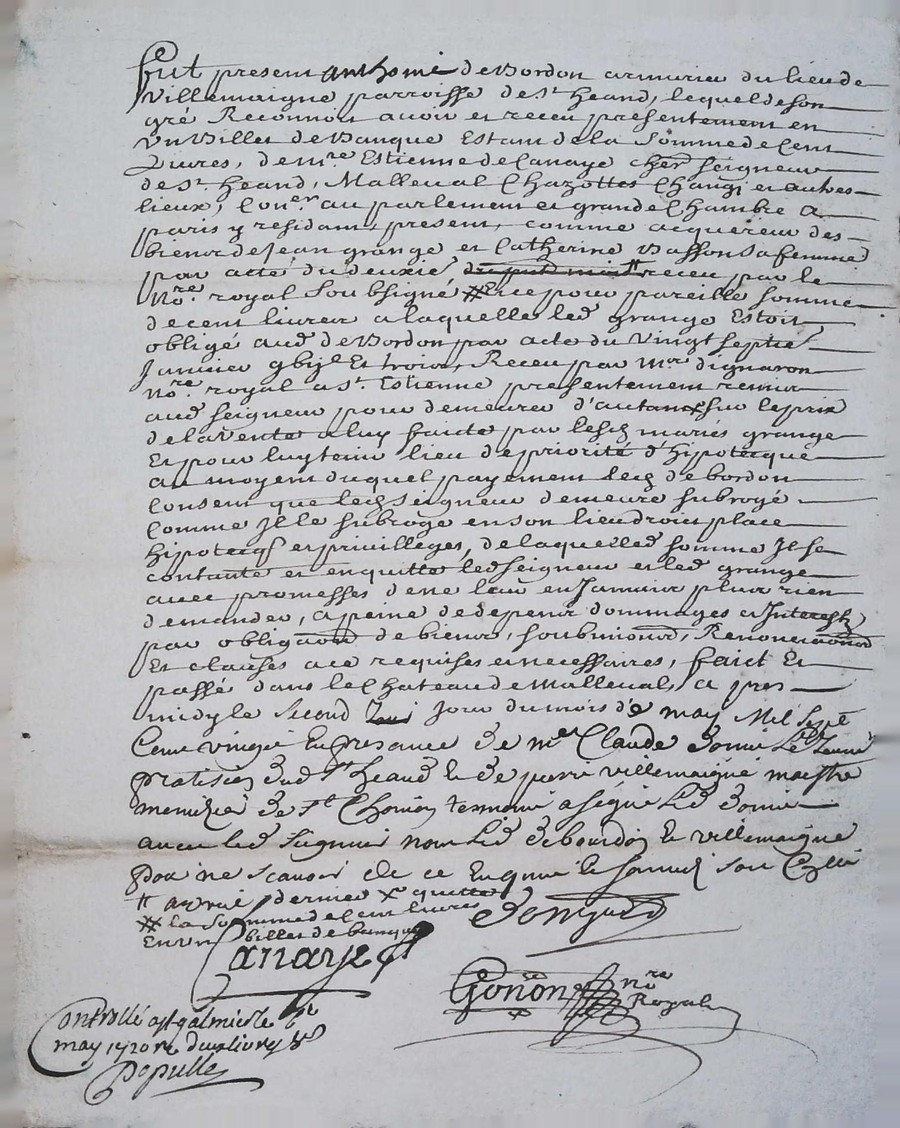 fut present anthoine deBordon armurier du lieu de
Villemaigne parroisse de St. heand, lequel de son
gré Reconnoit avoir et receu presentement en
Un Billet de Banque Estant de la Somme de Cent
Livres, de mre. Estienne de Canaye cher. seigneur
de St. heand, Malleval Chazottes Changi et autres
lieux, Coner. au parlement et grande Chambre a
paris y residant, present, comme acquereur des
biens de Jean grange et Catherine Basson sa femme
par acte du deuxie receu par le
nore. royal Soubsigné # Et ce pour pareille somme
de cent livres a laquelle led grange Estoit
obligé aud deBordon par acte du vingt septie
Janvier Et trois, Receu par mr. dignaron
nore. royal a St. Estienne presentement remis
aud seigneur pour demeurer d'autant sur le prix
de la vente a luy faicte par lesd mariés grange
Et pour luy tenir lieu de priorité d'hipotecque
au moyen duquel payement led de bordon
Consent que led seigneur demeure subrogé
Comme Il le subroge en son lieu droit place
hipotecq et privilleges, de laquelle somme Il se
contante et en quitte led seigneur et led grange
avec promesses de ne luy en Jamais plus rien
demander, a peine de depens dommages et Interests
par obligaon de biens, soubmions, Renonciaons
Et clauses a ce requises et necessaires, faict Et
passé dans le Chateau de Malleval, a pres
midy le second jour du mois de may Mil Sept
Cent vingt En presance de me Claude le Jeune
praticien dud St heand & de pierre villemaigne maistre
menuizier de St
avec led seigneur non led debourdon & villemaigne
pour ne scavoir de ce Enquis & sommés
# dernier quitte
# la Somme de Cent livres
En un billet de banque
Canaye
Gonon nore
Royal
Controllé a St galmier le
may 1720 deux livres
Depulle